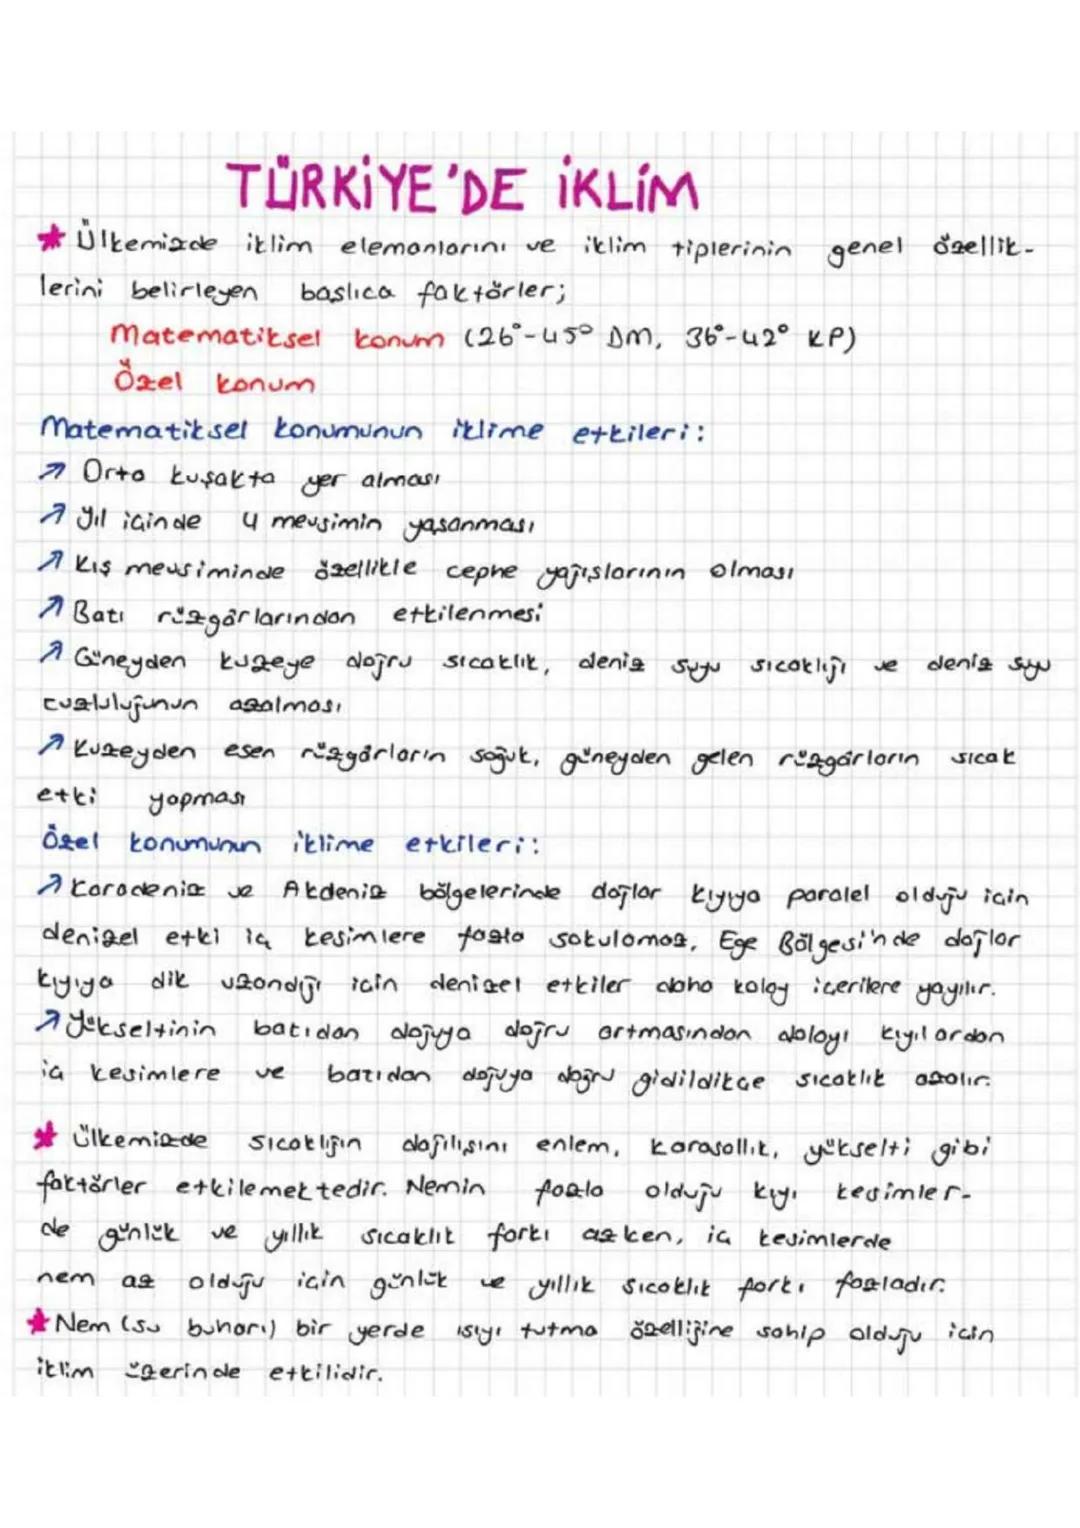 TÜRKİYE'DE İKLİM
* Ülkemizde iklim elemanlarını ve iklim tiplerinin genel özellik-
lerini belirleyen başlıca faktörler;
Matematiksel konum (26°-45° DM, 36°-42° KP)
Özel konum
Matematiksel konumunun iklime etkileri:
↗ Orta kuşakta yer alması
↗ Yıl içinde 4 mevsimin yaşanması
↗ Kış mevsiminde özellikle cephe yağışlarının olması
↗ Batı rüzgârlarından etkilenmesi
↗ Güneyden kuzeye doğru sıcaklık, deniz suyu sıcaklığı ve deniz suyu
tuzluluğunun azalması
↗ Kuzeyden esen rüzgârların soğuk, güneyden gelen rüzgârların sıcak
etki yapması
Özel konumunun iklime etkileri:
↗ Karadeniz ve Akdeniz bölgelerinde dağlar kıyıya paralel olduğu için
denizel etki iç kesimlere fazla sokulamaz, Ege Bölgesi'nde dağlar
kıyıya dik uzandığı için denizel etkiler daha kolay içerilere yayılır.
↗ Yükseltinin batıdan doğuya doğru artmasından dolayı kıyılardan
iç kesimlere ve batıdan doğuya doğru gidildikçe sıcaklık azalır.
* Ülkemizde sıcaklığın dağılışını enlem, karasallık, yükselti gibi
faktörler etkilemektedir. Nemin fazla olduğu kıyı kesimler-
de günlük ve yıllık sıcaklık farkı azken, iç kesimlerde
nem az olduğu için günlük ve yıllık sıcaklık farkı fazladır.
* Nem (su buharı) bir yerde ısıyı tutma özelliğine sahip olduğu için
iklim üzerinde etkilidir.